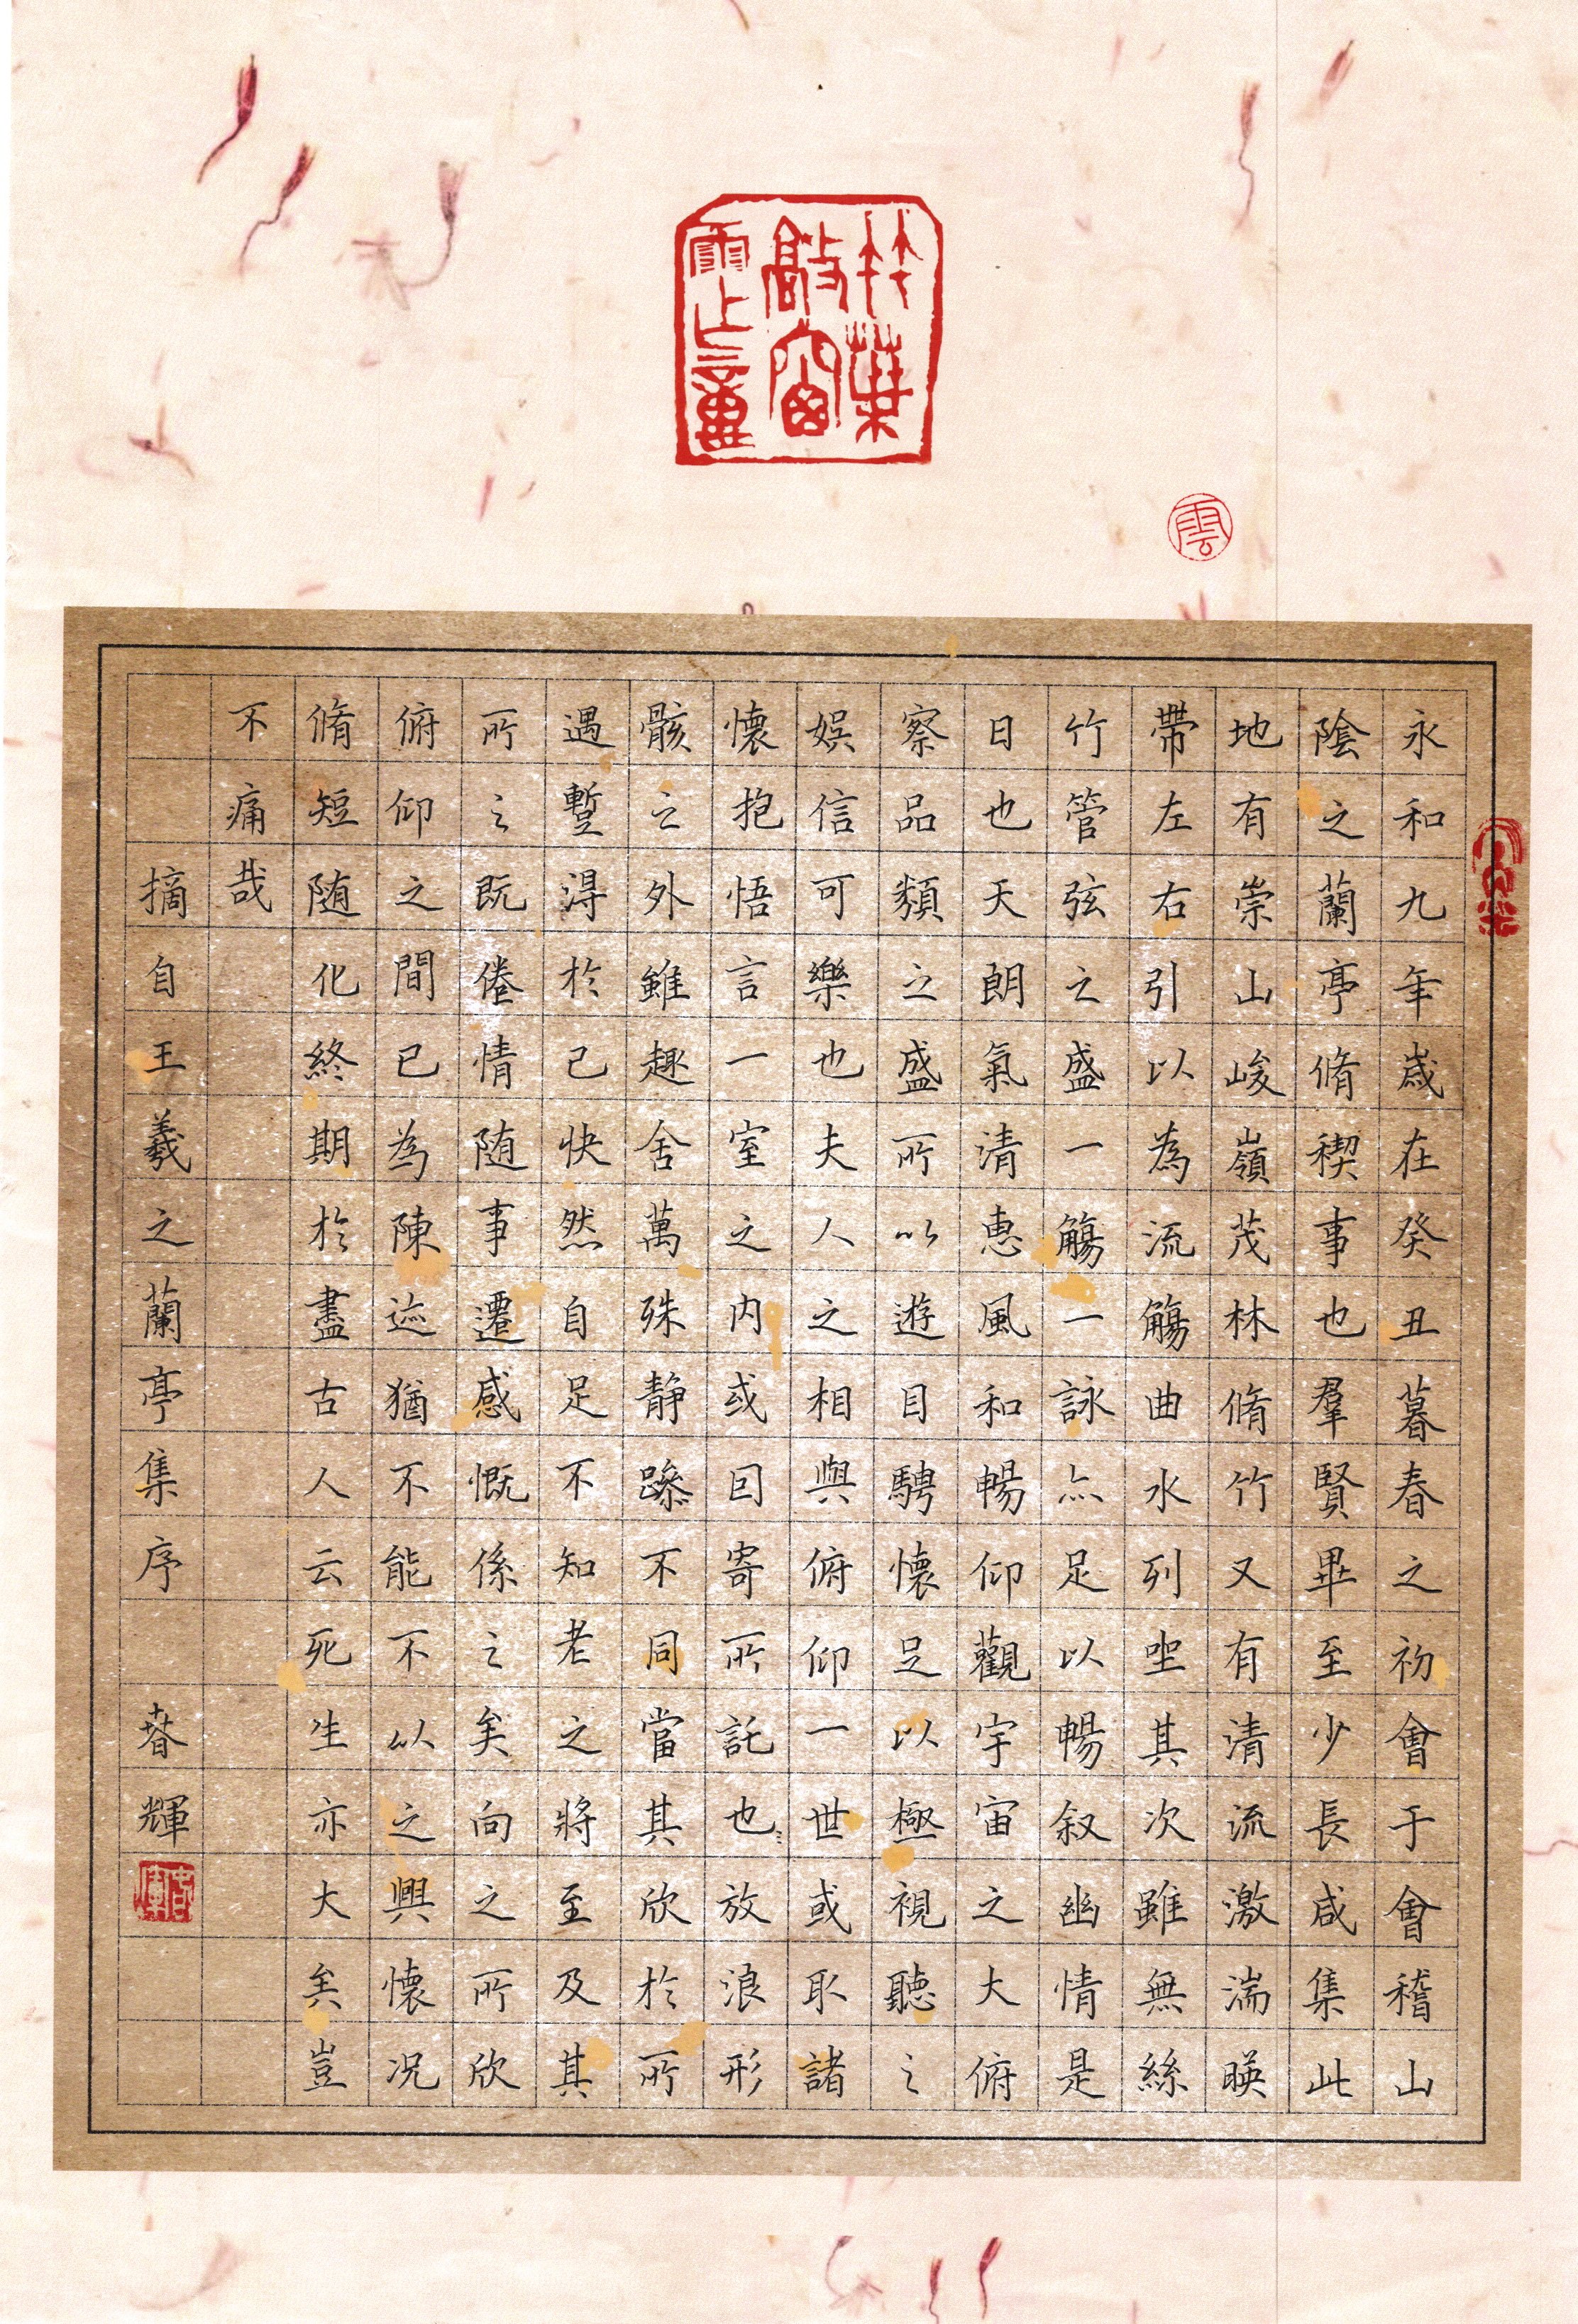 竹葉
敲窗
雲
永和九年歲在癸丑暮春之初會于會稽山
陰之蘭亭脩稧事也羣賢畢至少長咸集此
地有崇山峻嶺茂林脩竹又有清流激湍暎
帶左右引以為流觴曲水列坐其次雖無絲
竹管弦之盛一觴一詠亦足以暢叙幽情是
日也天朗氣清惠風和暢仰觀宇宙之大俯
察品類之盛所以遊目騁懷足以極視聽之
娛信可樂也夫人之相與俯仰一世或取諸
懷抱悟言一室之内或因寄所託也放浪形
骸之外雖趣舍萬殊静躁不同當其欣於所
遇蹔得於己快然自足不知老之將至及其
所之既倦情随事遷感慨係之矣向之所欣
俯仰之間已為陳迹猶不能不以之興懷况
脩短随化終期於盡古人云死生亦大矣豈
不痛哉
摘自王羲之蘭亭集序 春輝